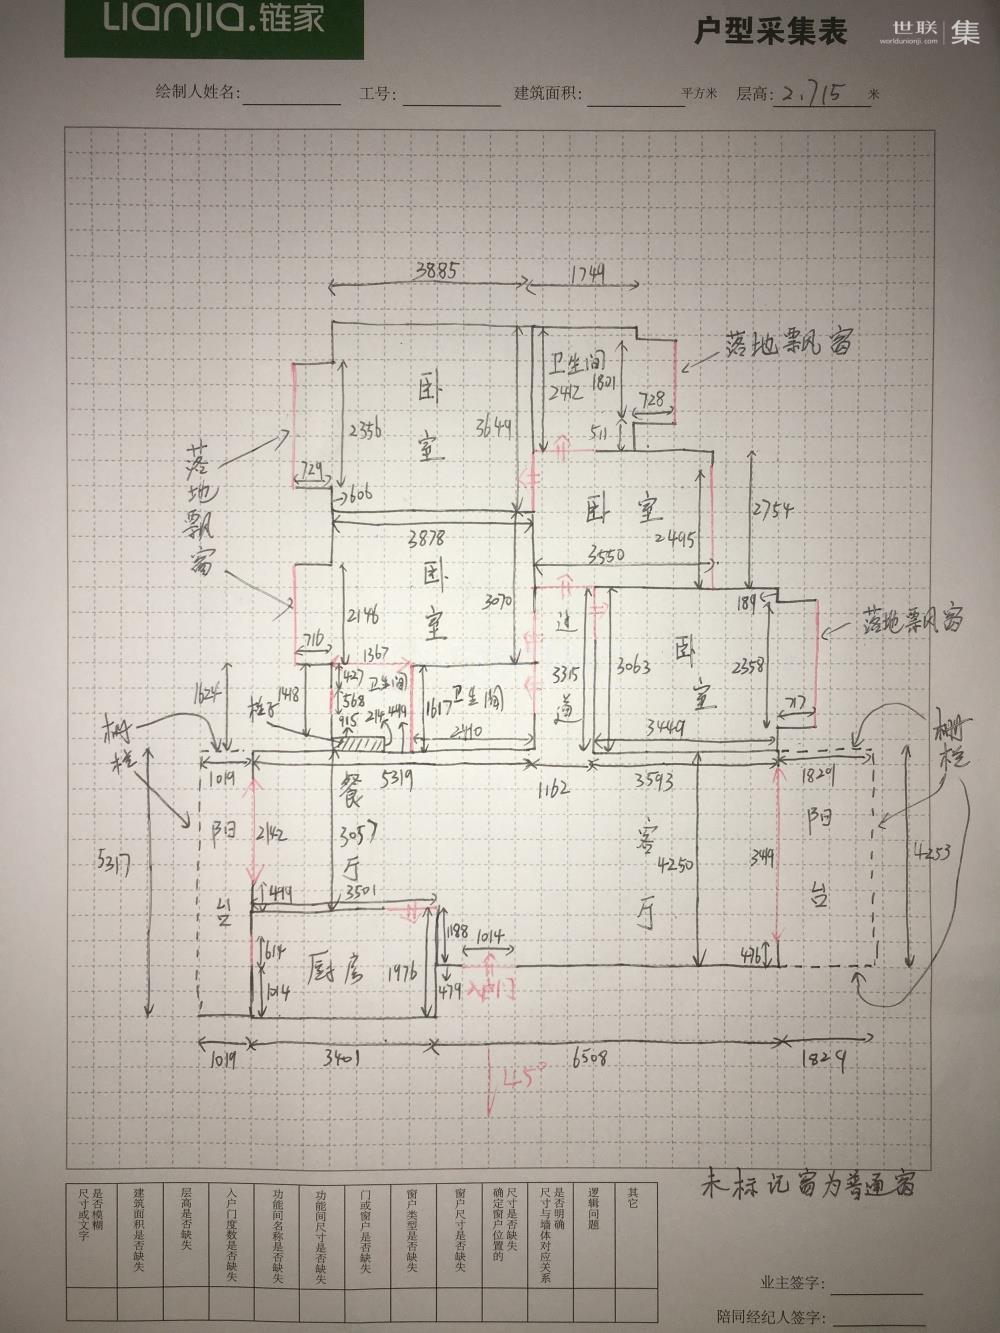 Lianjia.链家
户型采集表
世联 集
worldunionji.com
绘制人姓名:
工号:
建筑面积: 平方米
层高: 2.715 米
3885
1749
落地飘窗
卫生间
2412
1801
728
511
卧室
2356
3649
729
606
落地飘窗
3878
卧室
2495
2754
3550
卧室
2146
3070
716
1367
过道
3315
3063
卧室
189
2358
717
3449
落地飘窗
1624
1418
427
568
915
卫生间
214
449
1617
卫生间
2410
栅栏
1019
5319
1162
3593
1829
栅栏
阳台
2142
餐厅
3057
客厅
4250
349
阳台
4253
5317
499
3501
614
1014
厨房
1976
1188
1014
479
入户门
476
1019
3401
6508
1829
45°
未标记窗为普通窗
是否模糊尺寸或文字
建筑面积是否缺失
层高是否缺失
入户门度数是否缺失
功能间名称是否缺失
功能间尺寸是否缺失
门或窗户是否缺失
窗户类型是否缺失
窗户尺寸是否缺失
尺寸是否缺失确定窗户位置的
是否明确尺寸与墙体对应关系
逻辑问题
其它
业主签字:
陪同经纪人签字: